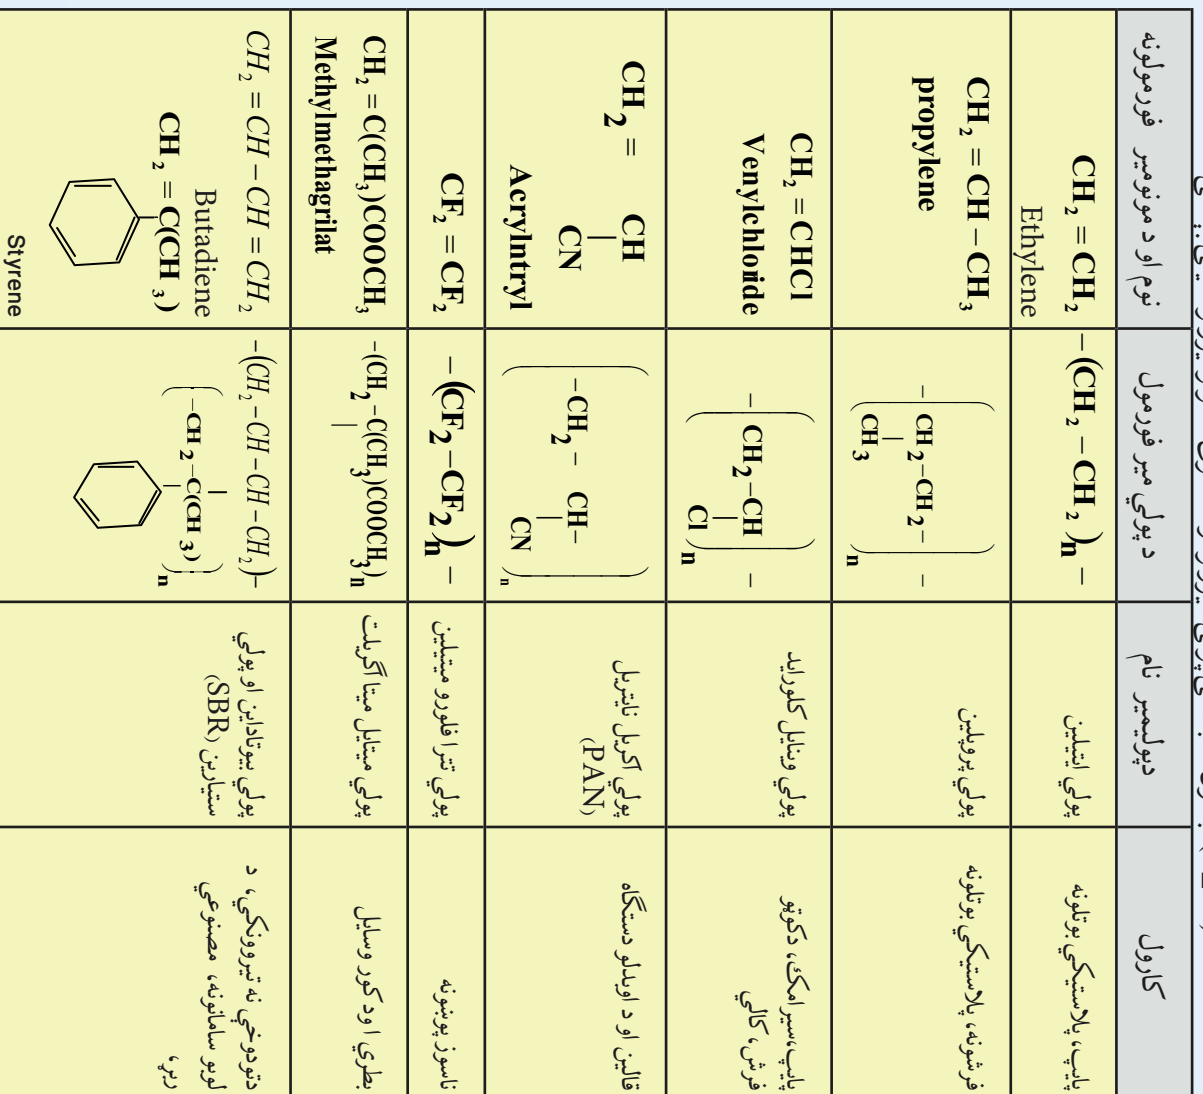 نوم او د مونومیر فورمولونه
د پولي میر فورمول
دپولیمیر نام
کارول
CH₂ = CH₂
Ethylene
−(CH₂ − CH₂)n −
پولي ایتیلین
پایپ، پلاستیکي بوتلونه
CH₂ = CH − CH₃
propylene
−
CH₂−CH₂−
|
CH₃
n
−
پولي پروپلین
فرشونه، پلاستیکي بوتلونه
CH₂ = CHCl
Venylchloride
−
CH₂−CH
|
Cl
n
−
پولي وینایل کلوراید
پایپ،سیرامکک، دکوټو
فرش، کالي
CH₂ = CH
|
CN
Acrylntryl
−CH₂ − CH−
|
CN
n
پولي اکریل نایتریل
(PAN)
قالین او د اوبدلو دستگاه
CF₂ = CF₂
−(CF₂−CF₂)n −
پولي تترا فلورو میتیلین
ناسوز پوښونه
CH₂ = C(CH₃)COOCH₃
Methylmethagrilat
−(CH₂ −C(CH₃)COOCH₃)n
|
پولي میتایل میتا اگریلت
بطري ا ود کور وسایل
CH₂ = CH − CH = CH₂
Butadiene
CH₂ = C(CH₃)
Styrene
−(CH₂ − CH − CH − CH₂)−
−CH₂−C(CH₃)
n
پولي بیوتاداین او پولي
ستیارین (SBR)
دتودوخي نه تیروونکي، د
لوبو سامانونه، مصنوعي
ربړ،